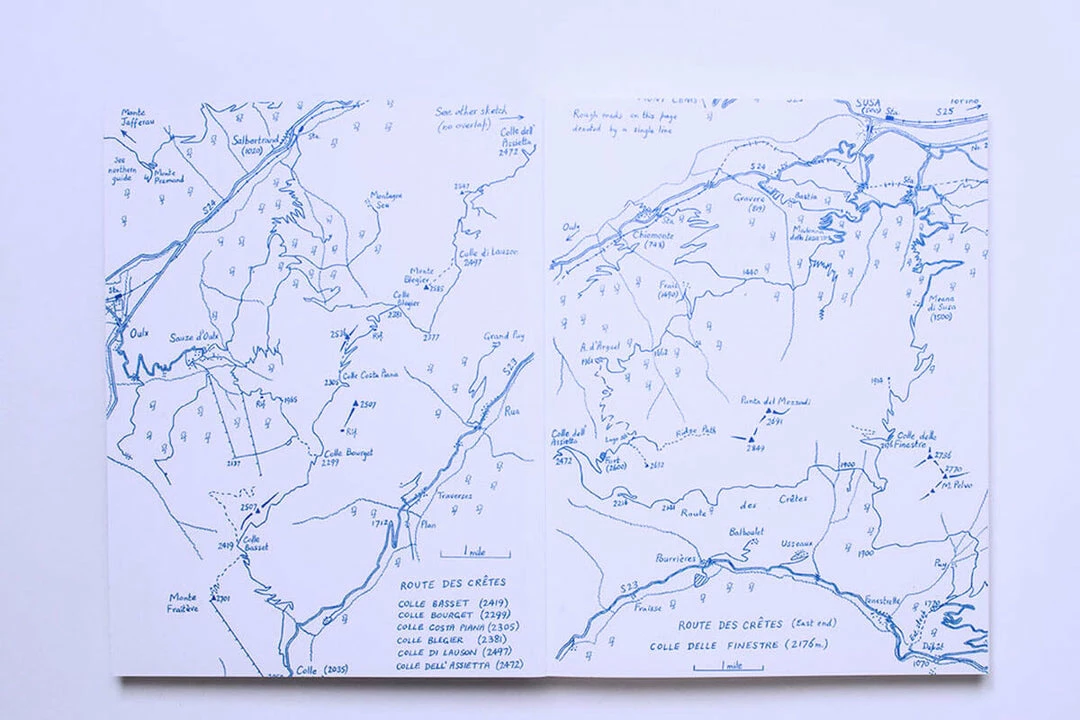 Monte
Jafferau
See
northern
guide
Monte
Pramand
Salbertrand
(1020)
Sta.
See other sketch
(no overlap)
Colle dell'
Assietta
2472
S24
Montagne
Seu
Colle di Lauson
2497
Monte
Blegier
2585
Colle
Blegier
2381
2377
Sta.
Oulx
Sauze d'Oulx
Rif.
Grand Puy
S23
Colle Costa Piana
2507
Rif.
Rif.
1985
Rua
2137
Colle Bourget
2299
2507
Traverses
1712
Plan
2419
Colle
Basset
1 mile
Monte
Fraitève
2701
ROUTE DES CRÊTES
COLLE BASSET (2419)
COLLE BOURGET (2299)
COLLE COSTA PIANA (2305)
COLLE BLEGIER (2381)
COLLE DI LAUSON (2497)
COLLE DELL'ASSIETTA (2472)
Colle (2035)
Rough roads on this page
denoted by a single line
SUSA
Torino
S25
S24
Gravere
(819)
Bastia
Sta.
Sta.
Oulx
Chiomonte
(748)
Frais
(1490)
1440
Meana
di Susa
(1500)
A. d'Arguel
Punta del Mezzodi
2691
2849
Ridge Path
Colle dell'
Assietta
2472
Fort
(2600)
2612
Colle delle
Finestre
2736
M. Pelvo
1900
Route des Crêtes
Balboutet
Usseaux
1900
Pourrières
Puy
S23
Fraisse
Fenestrelle
Depôt
1070
ROUTE DES CRÊTES (East end)
COLLE DELLE FINESTRE (2176m.)
1 mile